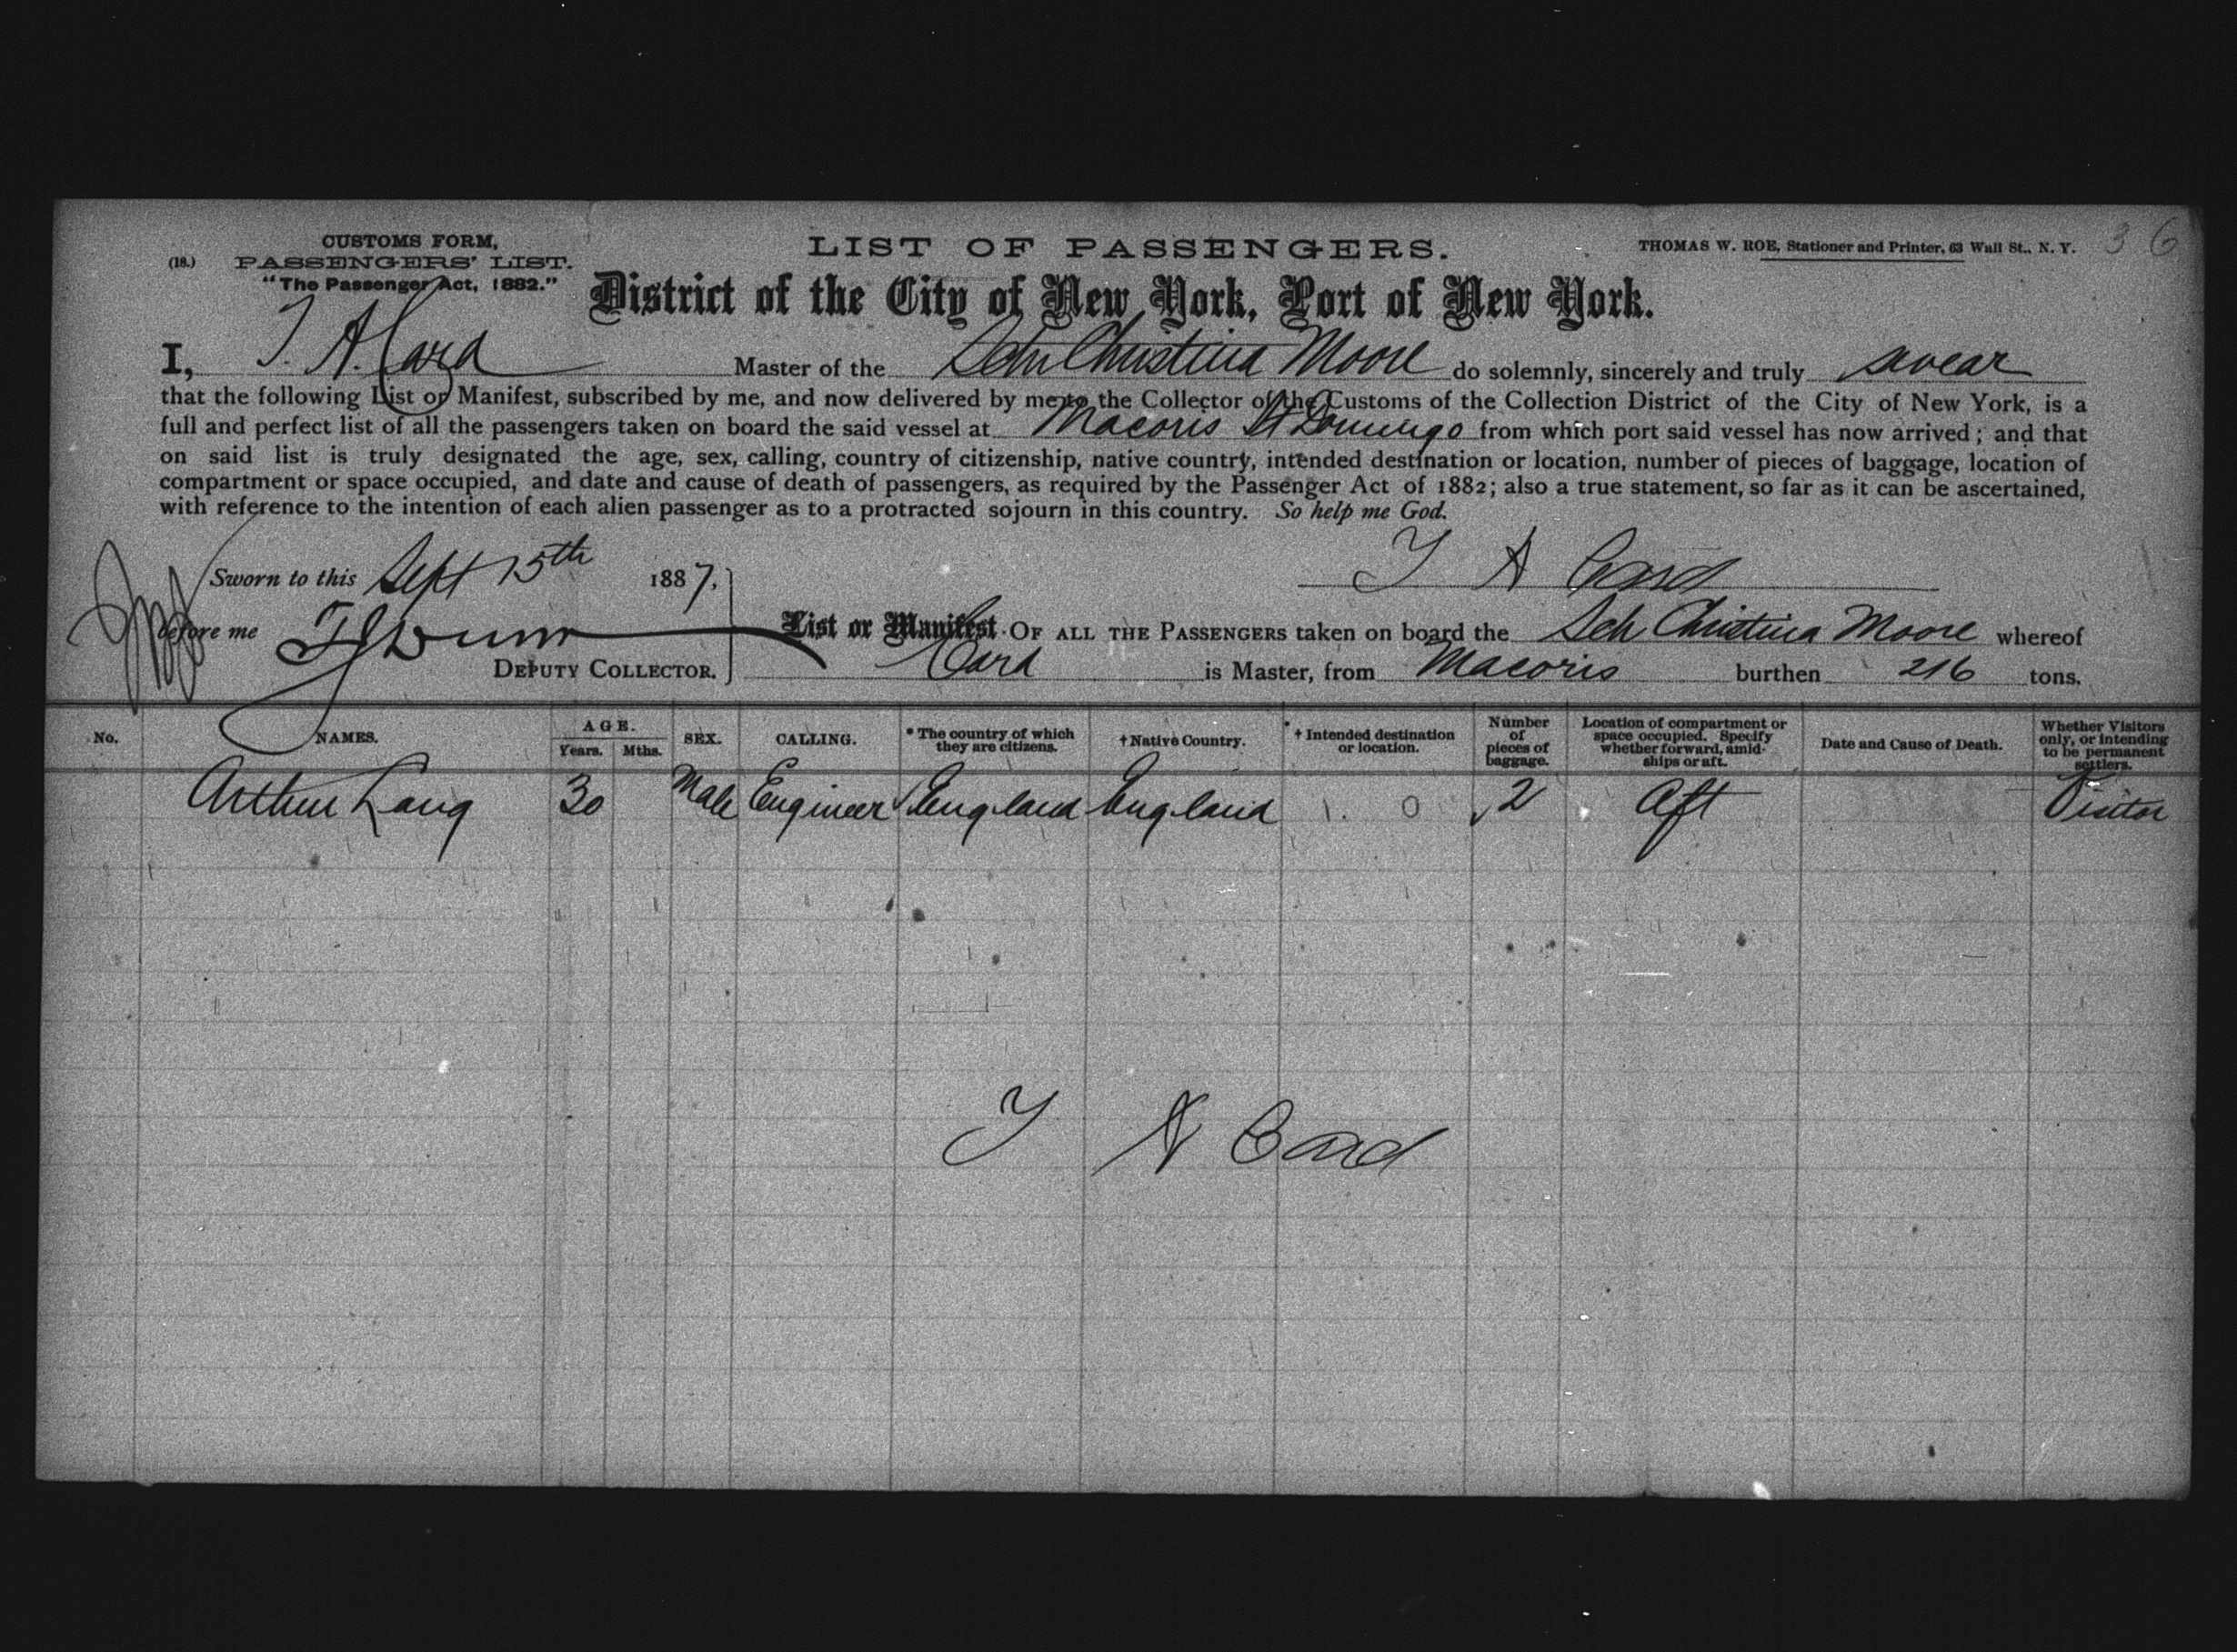 CUSTOMS FORM,
(18.) PASSENGERS' LIST.
"The Passenger Act, 1882."
LIST OF PASSENGERS.
THOMAS W. ROE, Stationer and Printer, 63 Wall St., N. Y. 36
District of the City of New York, Port of New York.
I, T. A. Card Master of the Schr Christina Moore do solemnly, sincerely and truly swear
that the following List or Manifest, subscribed by me, and now delivered by me to the Collector of the Customs of the Collection District of the City of New York, is a
full and perfect list of all the passengers taken on board the said vessel at Macoris St Domingo from which port said vessel has now arrived; and that
on said list is truly designated the age, sex, calling, country of citizenship, native country, intended destination or location, number of pieces of baggage, location of
compartment or space occupied, and date and cause of death of passengers, as required by the Passenger Act of 1882; also a true statement, so far as it can be ascertained,
with reference to the intention of each alien passenger as to a protracted sojourn in this country. So help me God.
T A Card
Sworn to this Sept 15th 1887.
before me
DEPUTY COLLECTOR.
List or Manifest OF ALL THE PASSENGERS taken on board the Sch Christina Moore whereof
Card is Master, from Macoris burthen 216 tons.
No. NAMES. AGE. Years. Mths. SEX. CALLING. * The country of which they are citizens. † Native Country. † Intended destination or location. Number of pieces of baggage. Location of compartment or space occupied. Specify whether forward, amidships or aft. Date and Cause of Death. Whether Visitors only, or intending to be permanent settlers.
Arthur Lang 30 Male Engineer England England 2 Aft Visitor
T A Card